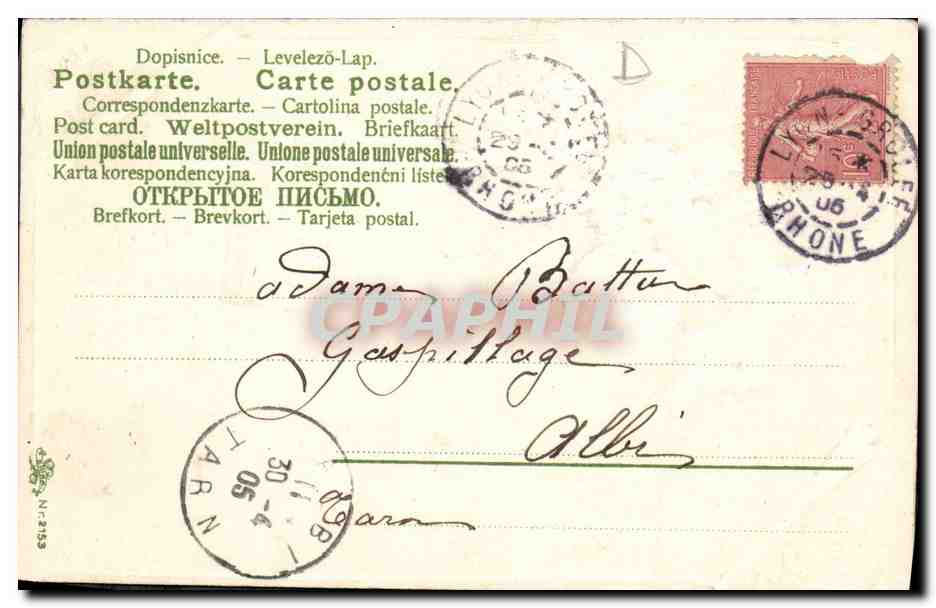 Dopisnice. – Levelezö-Lap.
Postkarte. Carte postale.
Correspondenzkarte. – Cartolina postale.
Post card. Weltpostverein. Briefkaart.
Union postale universelle. Unione postale universale.
Karta korespondencyjna. Korespondenčni listek
ОТКРЫТОЕ ПИСЬМО.
Brefkort. – Brevkort. – Tarjeta postal.
D
LYON
29
05
RHONE
10c
LYON - GROLEE
28 - 4
05
RHONE
adame
CPAPHIL
Gaspillage
Albi
Tarn
ALBI
30 - 4
05
TARN
Nr. 2153